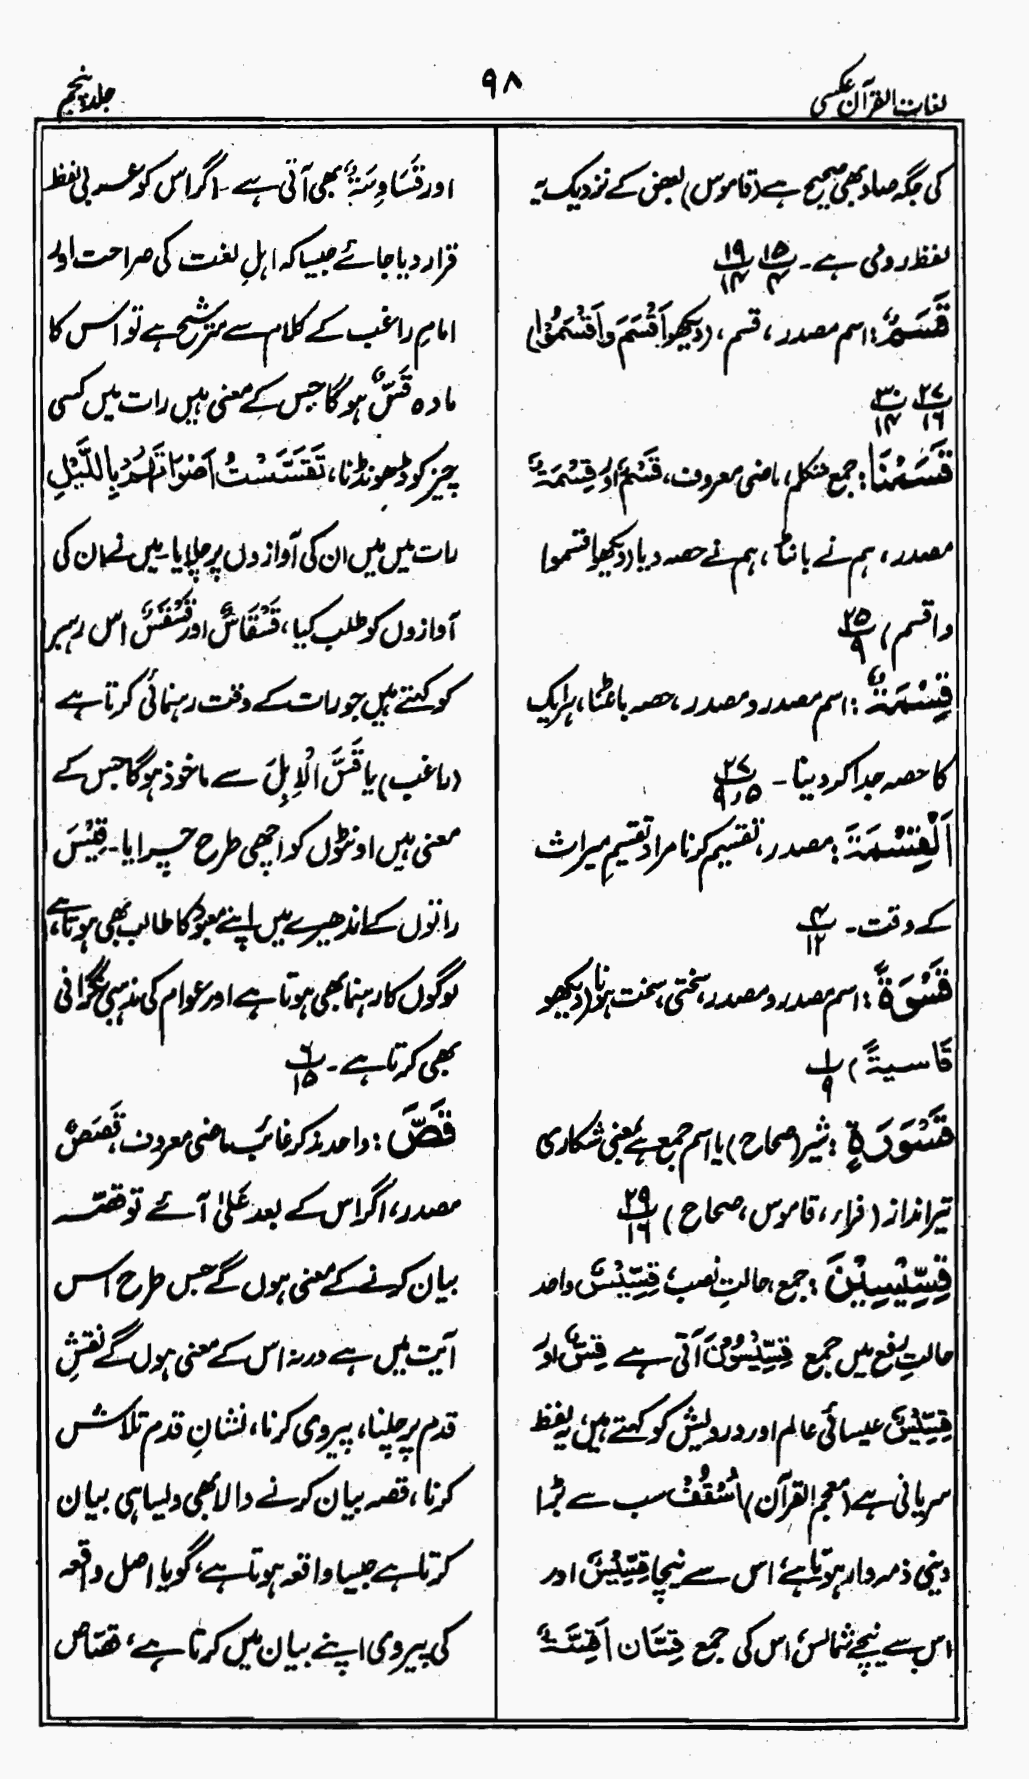 لغات القرآن عکسی
۹۸
جلد پنجم
کی جگہ صاد بھی صحیح ہے (قاموس) بعض کے نزدیک یہ
لفظ رومی ہے۔ ۱۵/۴ ۱۹/۱۴
قَسَمٌ: اسم مصدر، قسم، (دیکھو اَقْسَمَ وَاَقْسَمُوْا)
۲۷/۱۶ ۳۰/۱۴
قَسَمْنَا: جمع متکلم، ماضی معروف، قَسْمٌ اور قِسْمَةٌ
مصدر، ہم نے بانٹا، ہم نے حصہ دیا (دیکھو اقتسموا
واقسم) ۲۵/۹
قِسْمَةٌ: اسم مصدر و مصدر، حصہ بانٹنا، ہر ایک
کا حصہ جدا کر دینا۔ ۲۷/۵ و ۹
اَلْقِسْمَةَ: مصدر، تقسیم کرنا مراد تقسیمِ میراث
کے وقت۔ ۴/۱۲
قَسْوَةً: اسم مصدر و مصدر، سختی، سخت ہونا (دیکھو
قَاسِيَةً) ۱/۹
قَسْوَرَةٍ: شیر (صحاح) یا اسم جمع ہے بمعنی شکاری
تیر انداز (فراء، قاموس، صحاح) ۲۹/۱۶
قِسِّيْسِيْنَ: جمع، حالتِ نصب، قِسِّيْسٌ واحد
حالتِ رفع میں جمع قِسِّيْسُوْنَ آتی ہے قِسٌّ اور
قِسِّيْسٌ عیسائی عالم اور درویش کو کہتے ہیں، یہ لفظ
سریانی ہے (معجم القرآن) اُسْقُفْ سب سے بڑا
دینی ذمہ دار ہوتا ہے، اس سے نیچا قِسِّيْسٌ اور
اس سے نیچے شماس، اس کی جمع قِسَّان اَقِسَّةٌ
اور قَسَاوِسَةٌ بھی آتی ہے۔ اگر اس کو عربی لفظ
قرار دیا جائے جیسا کہ اہلِ لغت کی صراحت اور
امام راغب کے کلام سے مترشح ہے تو اس کا
مادہ قَسٌّ ہوگا جس کے معنی ہیں رات میں کسی
چیز کو ڈھونڈنا، تَقَسَّسْتُ اَصْوَاتَهُمْ بِاللَّيْلِ
رات میں میں ان کی آوازوں پر چلا یا۔ میں نے ان کی
آوازوں کو طلب کیا، قَسْقَاسٌ اور قَسْقَسٌ اس رہبر
کو کہتے ہیں جو رات کے وقت رہنمائی کرتا ہے
(راغب) یا قَسَّ الْاِبِلَ سے ماخوذ ہوگا جس کے
معنی ہیں اونٹوں کو اچھی طرح چرایا۔ قِسِّيْسَ
راتوں کے اندھیرے میں اپنے معبود کا طالب بھی ہوتا ہے،
لوگوں کا رہنما بھی ہوتا ہے اور عوام کی مذہبی نگرانی
بھی کرتا ہے۔ ۶/۱۵
قَصَّ: واحد مذکر غائب ماضی معروف، قَصَصٌ
مصدر، اگر اس کے بعد عَلیٰ آئے تو قصہ
بیان کرنے کے معنی ہوں گے جس طرح اس
آیت میں ہے ورنہ اس کے معنی ہوں گے نقشِ
قدم پر چلنا، پیروی کرنا، نشانِ قدم تلاش
کرنا، قصہ بیان کرنے والا بھی ولیسا ہی بیان
کرتا ہے جیسا واقعہ ہوتا ہے، گویا اصل واقعہ
کی پیروی اپنے بیان میں کرتا ہے، قصّاص